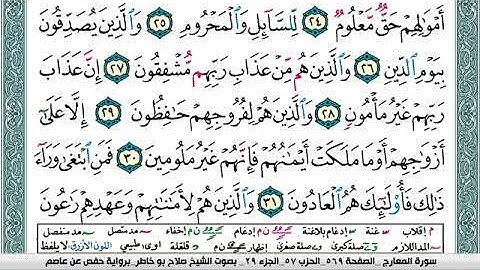 أَمْوَٰلِهِمْ حَقٌّ مَّعْلُومٌ ٢٤ لِّلسَّآئِلِ وَٱلْمَحْرُومِ ٢٥ وَٱلَّذِينَ يُصَدِّقُونَ
بِيَوْمِ ٱلدِّينِ ٢٦ وَٱلَّذِينَ هُم مِّنْ عَذَابِ رَبِّهِم مُّشْفِقُونَ ٢٧ إِنَّ عَذَابَ
رَبِّهِمْ غَيْرُ مَأْمُونٍ ٢٨ وَٱلَّذِينَ هُمْ لِفُرُوجِهِمْ حَٰفِظُونَ ٢٩ إِلَّا عَلَىٰٓ
أَزْوَٰجِهِمْ أَوْ مَا مَلَكَتْ أَيْمَٰنُهُمْ فَإِنَّهُمْ غَيْرُ مَلُومِينَ ٣٠ فَمَنِ ٱبْتَغَىٰ وَرَآءَ
ذَٰلِكَ فَأُو۟لَٰٓئِكَ هُمُ ٱلْعَادُونَ ٣١ وَٱلَّذِينَ هُمْ لِأَمَٰنَٰتِهِمْ وَعَهْدِهِمْ رَٰعُونَ
م إقلاب غنة إدغام بلاغنة إدغام إخفاء مد متصل مد منفصل
المد اللازم صلة كبرى صلة صغرى إظهار قلقلة طبيعي اللون الأزرق يلفظ
سورة المعارج _ الصفحة ٥٦٩_ الحزب ٥٧_ الجزء ٢٩_ بصوت الشيخ صلاح بو خاطر_ برواية حفص عن عاصم